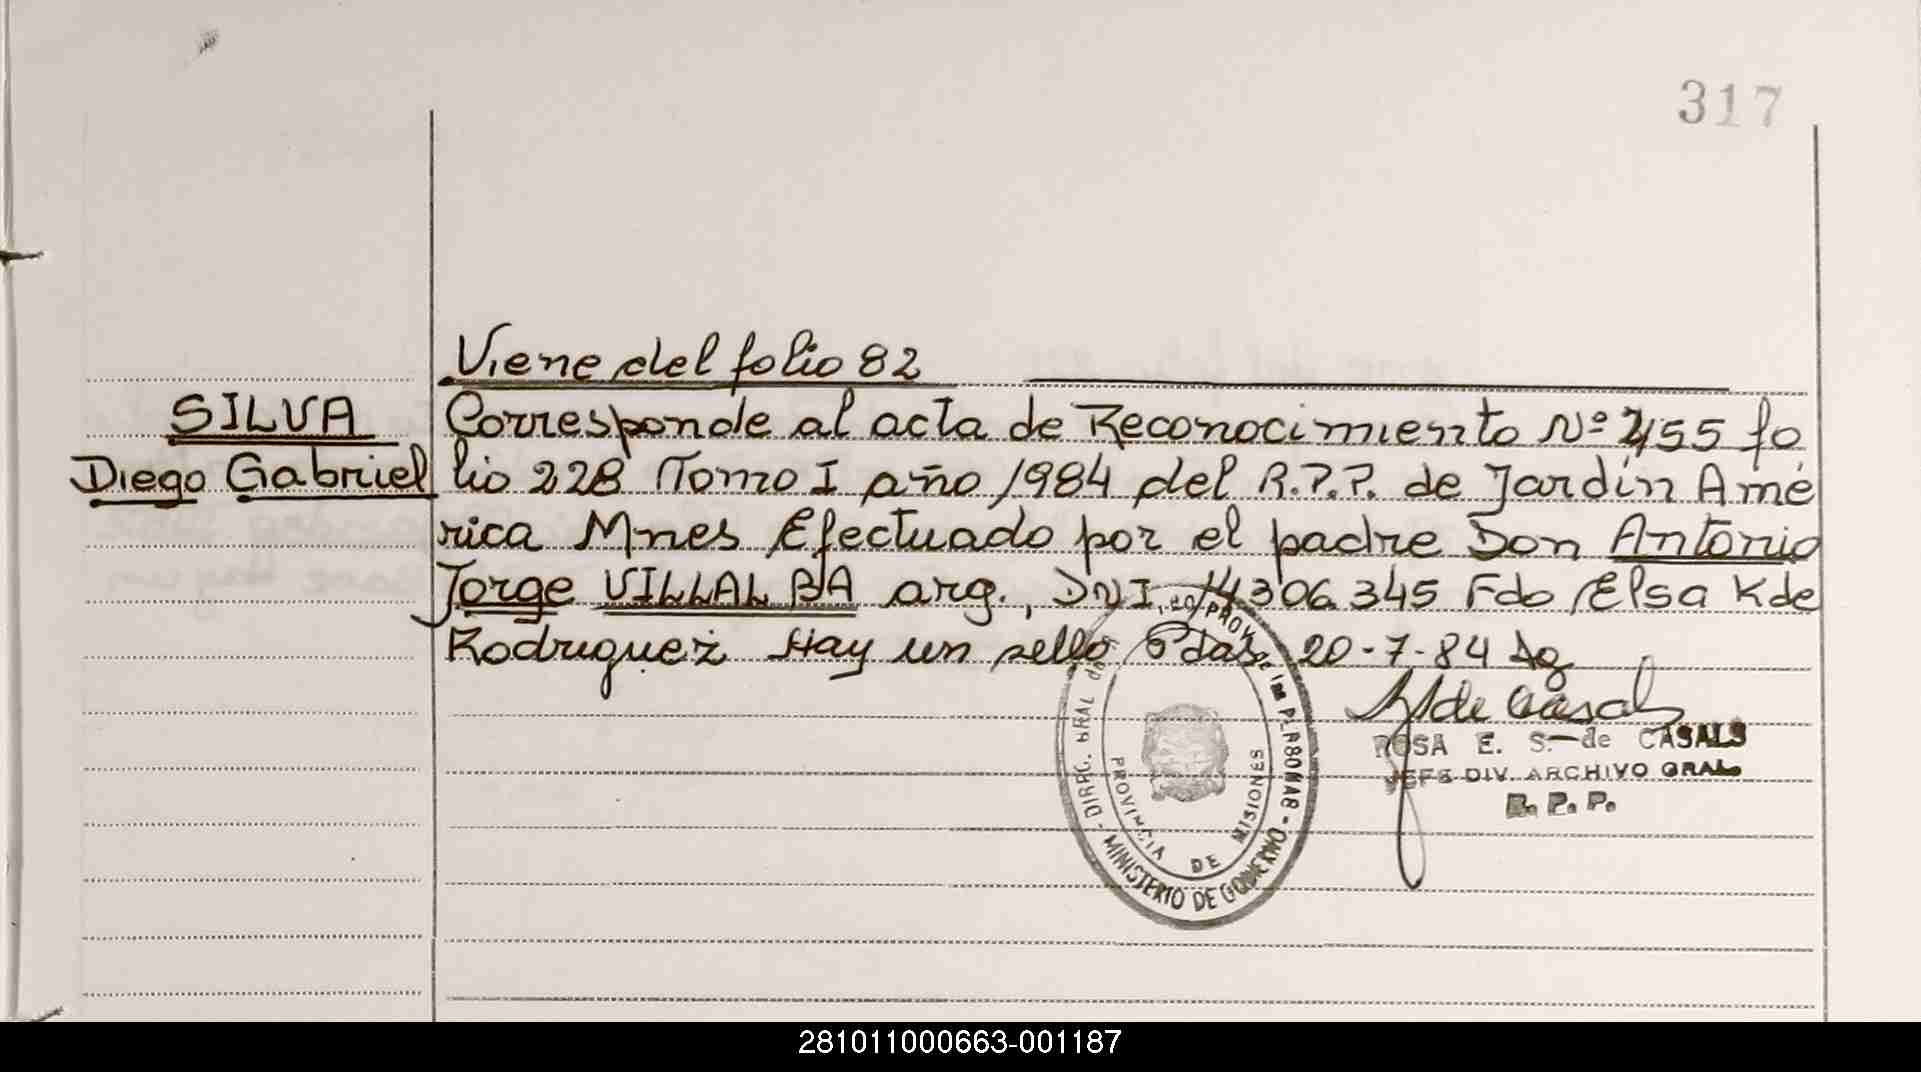 317
Viene del folio 82
SILVA
Diego Gabriel
Corresponde al acta de Reconocimiento Nº 455 fo
lio 228 Tomo I año 1984 del R.P.P. de Jardín Amé
rica Mnes Efectuado por el padre Don Antonio
Jorge VILLALBA arg., DNI, 14306.345 Fdo Elsa K de
Rodriguez Hay un sello Pdas 20-7-84
de Casals
ROSA E. S. de CASALS
JEFE DIV. ARCHIVO GRAL
R. P. P.
DIREC. GRAL del
MINISTERIO DE GOBIERNO
PROVINCIA DE MISIONES
281011000663-001187